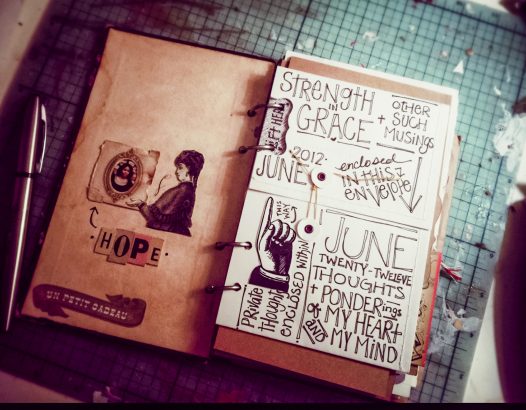 HOPE
UN PETIT CADEAU
STRENGTH
in
GRACE
+ OTHER
SUCH
MUSINGS
2012
JUNE
enclosed
IN THIS
ENVELOPE
THIS WAY
Private
Thoughts
enclosed within
JUNE
TWENTY-TWELVE
THOUGHTS
+ PONDERings
of MY HEART
AND MY MIND